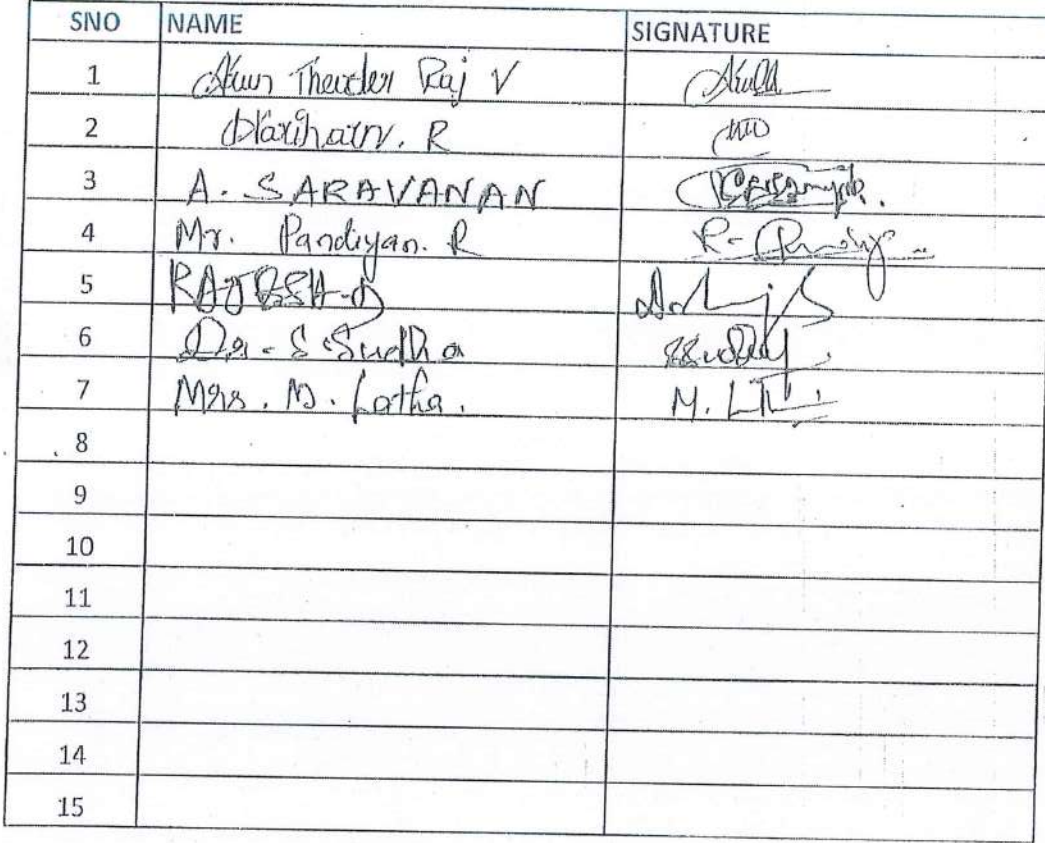 SNO NAME SIGNATURE
1 Arun Theoder Raj V
2 Hariharn. R
3 A. SARAVANAN
4 Mr. Pandiyan. R R-
5 RAJESH-A
6 Dr. S. Sudha
7 Mrs. M. Latha. M.
8
9
10
11
12
13
14
15